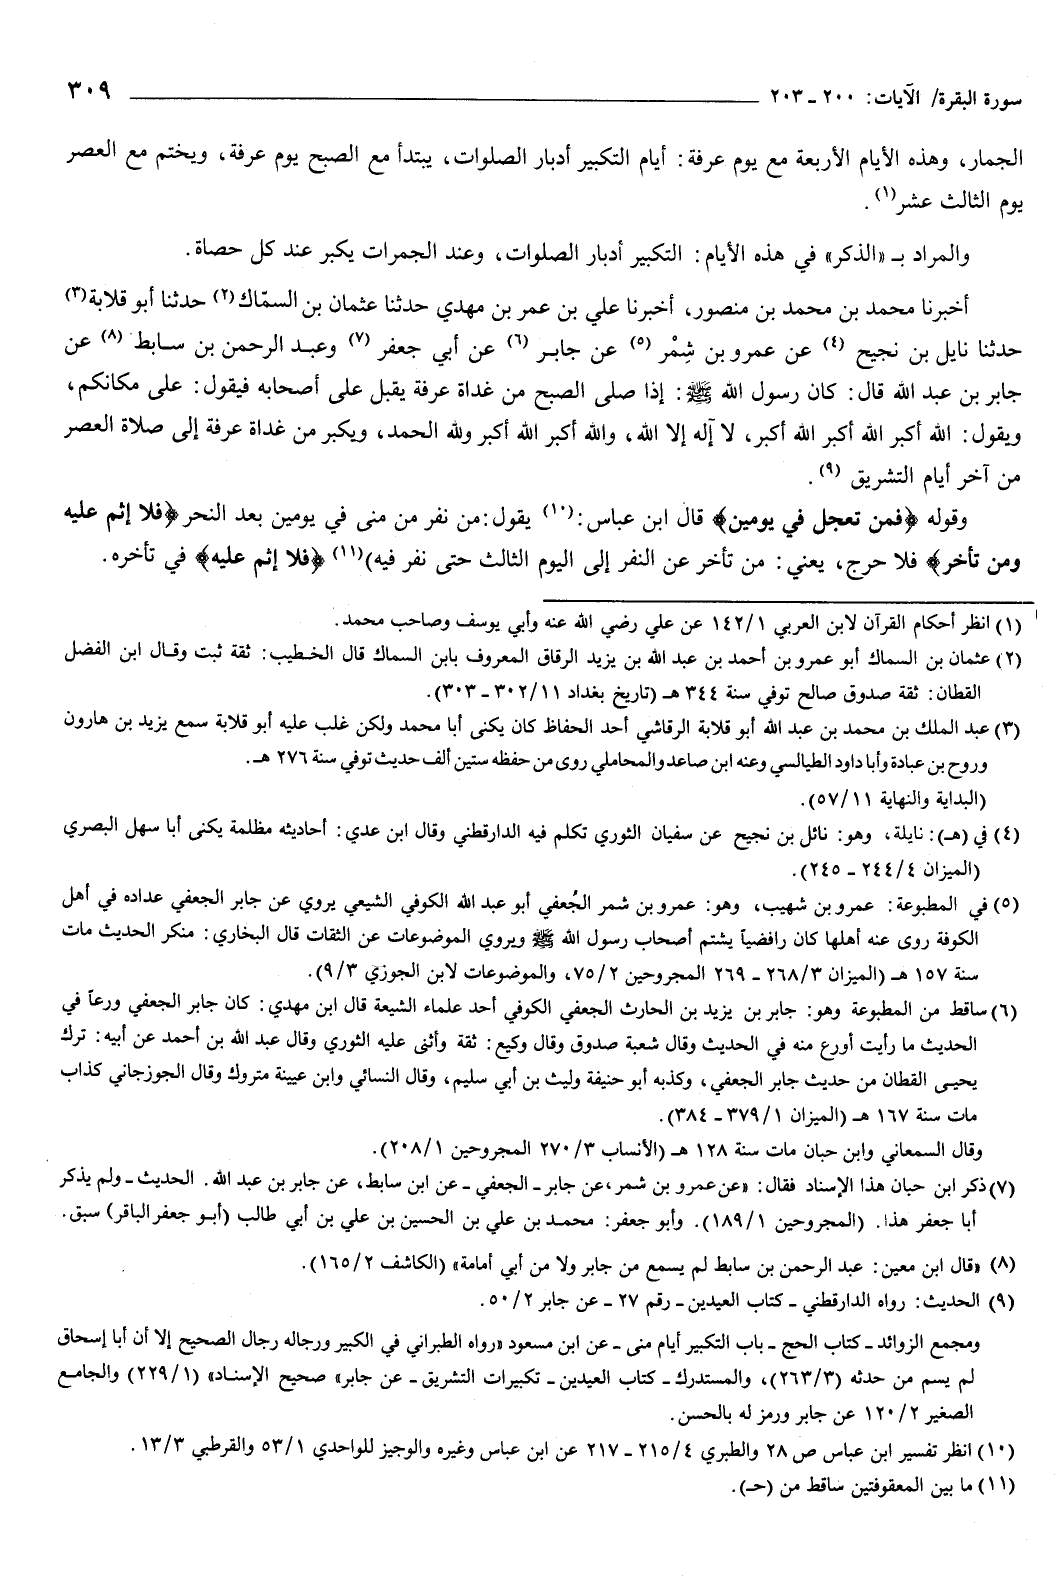 سورة البقرة/ الآيات: ٢٠٠ ـ ٢٠٣ ٣٠٩
الجمار، وهذه الأيام الأربعة مع يوم عرفة: أيام التكبير أدبار الصلوات، يبتدأ مع الصبح يوم عرفة، ويختم مع العصر
يوم الثالث عشر(١).
والمراد بـ «الذكر» في هذه الأيام: التكبير أدبار الصلوات، وعند الجمرات يكبر عند كل حصاة.
أخبرنا محمد بن محمد بن منصور، أخبرنا علي بن عمر بن مهدي حدثنا عثمان بن السمّاك(٢) حدثنا أبو قلابة(٣)
حدثنا نايل بن نجيح (٤) عن عمرو بن شِمْر (٥) عن جابر (٦) عن أبي جعفر (٧) وعبد الرحمن بن سابط (٨) عن
جابر بن عبد الله قال: كان رسول الله ﷺ: إذا صلى الصبح من غداة عرفة يقبل على أصحابه فيقول: على مكانكم،
ويقول: الله أكبر الله أكبر الله أكبر، لا آله إلا الله، والله أكبر الله أكبر ولله الحمد، ويكبر من غداة عرفة إلى صلاة العصر
من آخر أيام التشريق (٩).
وقوله ﴿فمن تعجل في يومين﴾ قال ابن عباس:(١٠) يقول:من نفر من منى في يومين بعد النحر ﴿فلا إثم عليه
ومن تأخر﴾ فلا حرج، يعني: من تأخر عن النفر إلى اليوم الثالث حتى نفر فيه)(١١) ﴿فلا إثم عليه﴾ في تأخره.
(١) انظر أحكام القرآن لابن العربي ١/١٤٢ عن علي رضي الله عنه وأبي يوسف وصاحب محمد.
(٢) عثمان بن السماك أبو عمرو بن أحمد بن عبد الله بن يزيد الرقاق المعروف بابن السماك قال الخطيب: ثقة ثبت وقال ابن الفضل
القطان: ثقة صدوق صالح توفي سنة ٣٤٤ هـ (تاريخ بغداد ١١/٣٠٢ ـ ٣٠٣).
(٣) عبد الملك بن محمد بن عبد الله أبو قلابة الرقاشي أحد الحفاظ كان يكنى أبا محمد ولكن غلب عليه أبو قلابة سمع يزيد بن هارون
وروح بن عبادة وأبا داود الطيالسي وعنه ابن صاعد والمحاملي روى من حفظه ستين ألف حديث توفي سنة ٢٧٦ هـ.
(البداية والنهاية ١١/٥٧).
(٤) في (هـ): نايلة، وهو: نائل بن نجيح عن سفيان الثوري تكلم فيه الدارقطني وقال ابن عدي: أحاديثه مظلمة يكنى أبا سهل البصري
(الميزان ٤/٢٤٤ ـ ٢٤٥).
(٥) في المطبوعة: عمرو بن شهيب، وهو: عمرو بن شمر الجُعفي أبو عبد الله الكوفي الشيعي يروي عن جابر الجعفي عداده في أهل
الكوفة روى عنه أهلها كان رافضياً يشتم أصحاب رسول الله ﷺ ويروي الموضوعات عن الثقات قال البخاري: منكر الحديث مات
سنة ١٥٧ هـ (الميزان ٣/٢٦٨ ـ ٢٦٩ المجروحين ٢/٧٥، والموضوعات لابن الجوزي ٩/٣).
(٦) ساقط من المطبوعة وهو: جابر بن يزيد بن الحارث الجعفي الكوفي أحد علماء الشيعة قال ابن مهدي: كان جابر الجعفي ورعاً في
الحديث ما رأيت أورع منه في الحديث وقال شعبة صدوق وقال وكيع: ثقة وأثنى عليه الثوري وقال عبد الله بن أحمد عن أبيه: ترك
يحيى القطان من حديث جابر الجعفي، وكذبه أبو حنيفة وليث بن أبي سليم، وقال النسائي وابن عيينة متروك وقال الجوزجاني كذاب
مات سنة ١٦٧ هـ (الميزان ١/٣٧٩ ـ ٣٨٤).
وقال السمعاني وابن حبان مات سنة ١٢٨ هـ (الأنساب ٣/٢٧٠ المجروحين ١/٢٠٨).
(٧) ذكر ابن حبان هذا الإسناد فقال: «عن عمرو بن شمر، عن جابر ـ الجعفي ـ عن ابن سابط، عن جابر بن عبد الله. الحديث ـ ولم يذكر
أبا جعفر هذا. (المجروحين ١/١٨٩). وأبو جعفر: محمد بن علي بن الحسين بن علي بن أبي طالب (أبو جعفر الباقر) سبق.
(٨) «قال ابن معين: عبد الرحمن بن سابط لم يسمع من جابر ولا من أبي أمامة» (الكاشف ٢/١٦٥).
(٩) الحديث: رواه الدارقطني ـ كتاب العيدين ـ رقم ٢٧ ـ عن جابر ٢/٥٠.
ومجمع الزوائد ـ كتاب الحج ـ باب التكبير أيام منى ـ عن ابن مسعود «رواه الطبراني في الكبير ورجاله رجال الصحيح إلا أن أبا إسحاق
لم يسم من حدثه (٣/٢٦٣)، والمستدرك ـ كتاب العيدين ـ تكبيرات التشريق ـ عن جابر» صحيح الإسناد» (١/٢٢٩) والجامع
الصغير ٢/١٢٠ عن جابر ورمز له بالحسن.
(١٠) انظر تفسير ابن عباس ص ٢٨ والطبري ٤/٢١٥ ـ ٢١٧ عن ابن عباس وغيره والوجيز للواحدي ١/٥٣ والقرطبي ٣/١٣.
(١١) ما بين المعقوفتين ساقط من (حـ).